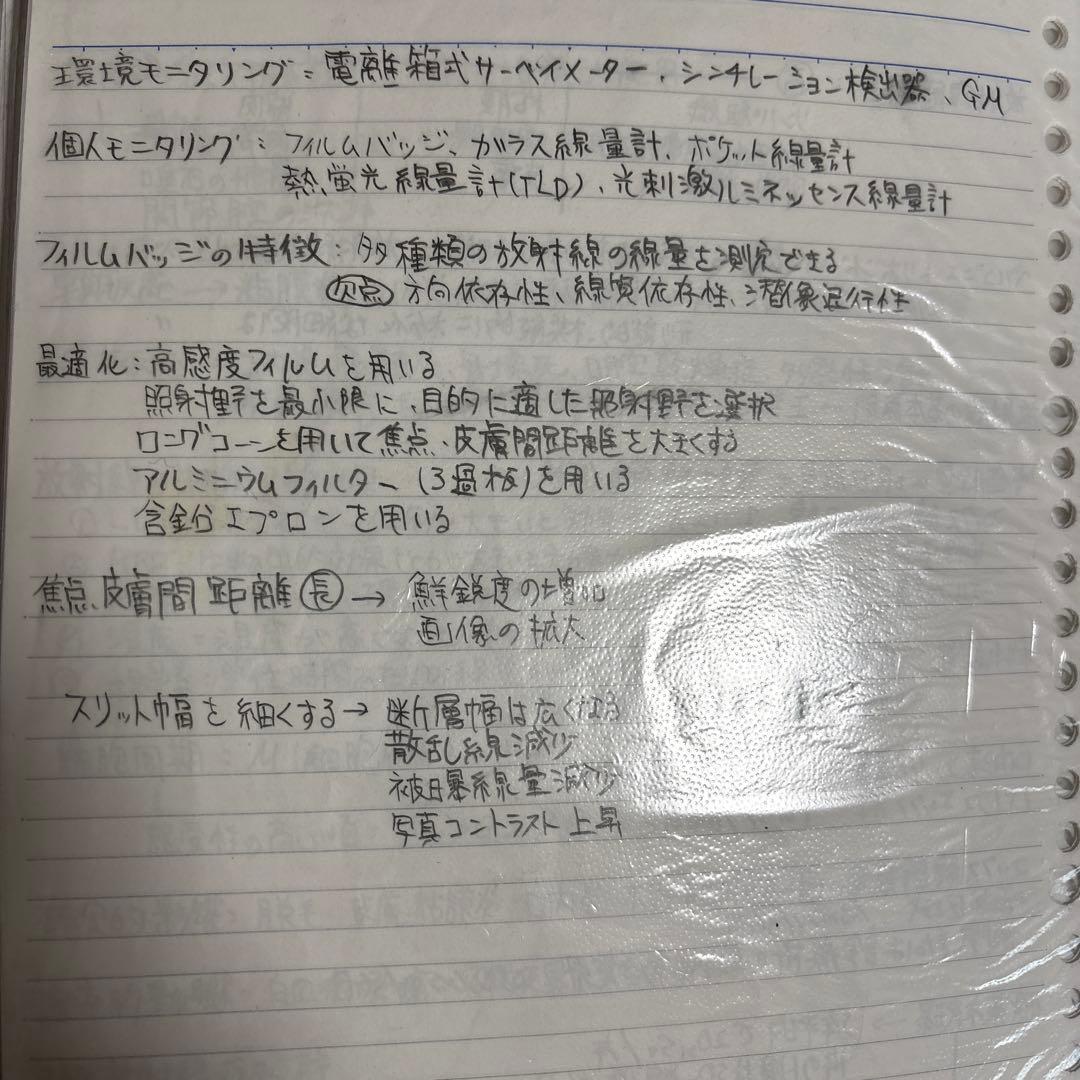 環境モニタリング：電離箱式サーベイメーター、シンチレーション検出器、GM
個人モニタリング：フィルムバッジ、ガラス線量計、ポケット線量計
熱蛍光線量計(TLD)、光刺激ルミネッセンス線量計
フィルムバッジの特徴：多種類の放射線の線量を測定できる
欠点 方向依存性、線質依存性、潜像退行性
最適化：高感度フィルムを用いる
照射野を最小限に、目的に適した照射野を選択
ロングコーンを用いて焦点、皮膚間距離を大きくする
アルミニウムフィルター(ろ過板)を用いる
含鉛エプロンを用いる
焦点、皮膚間距離 長 → 鮮鋭度の増加
画像の拡大
スリット幅を細くする → 断層幅は広くなる
散乱線減少
被曝線量減少
写真コントラスト上昇